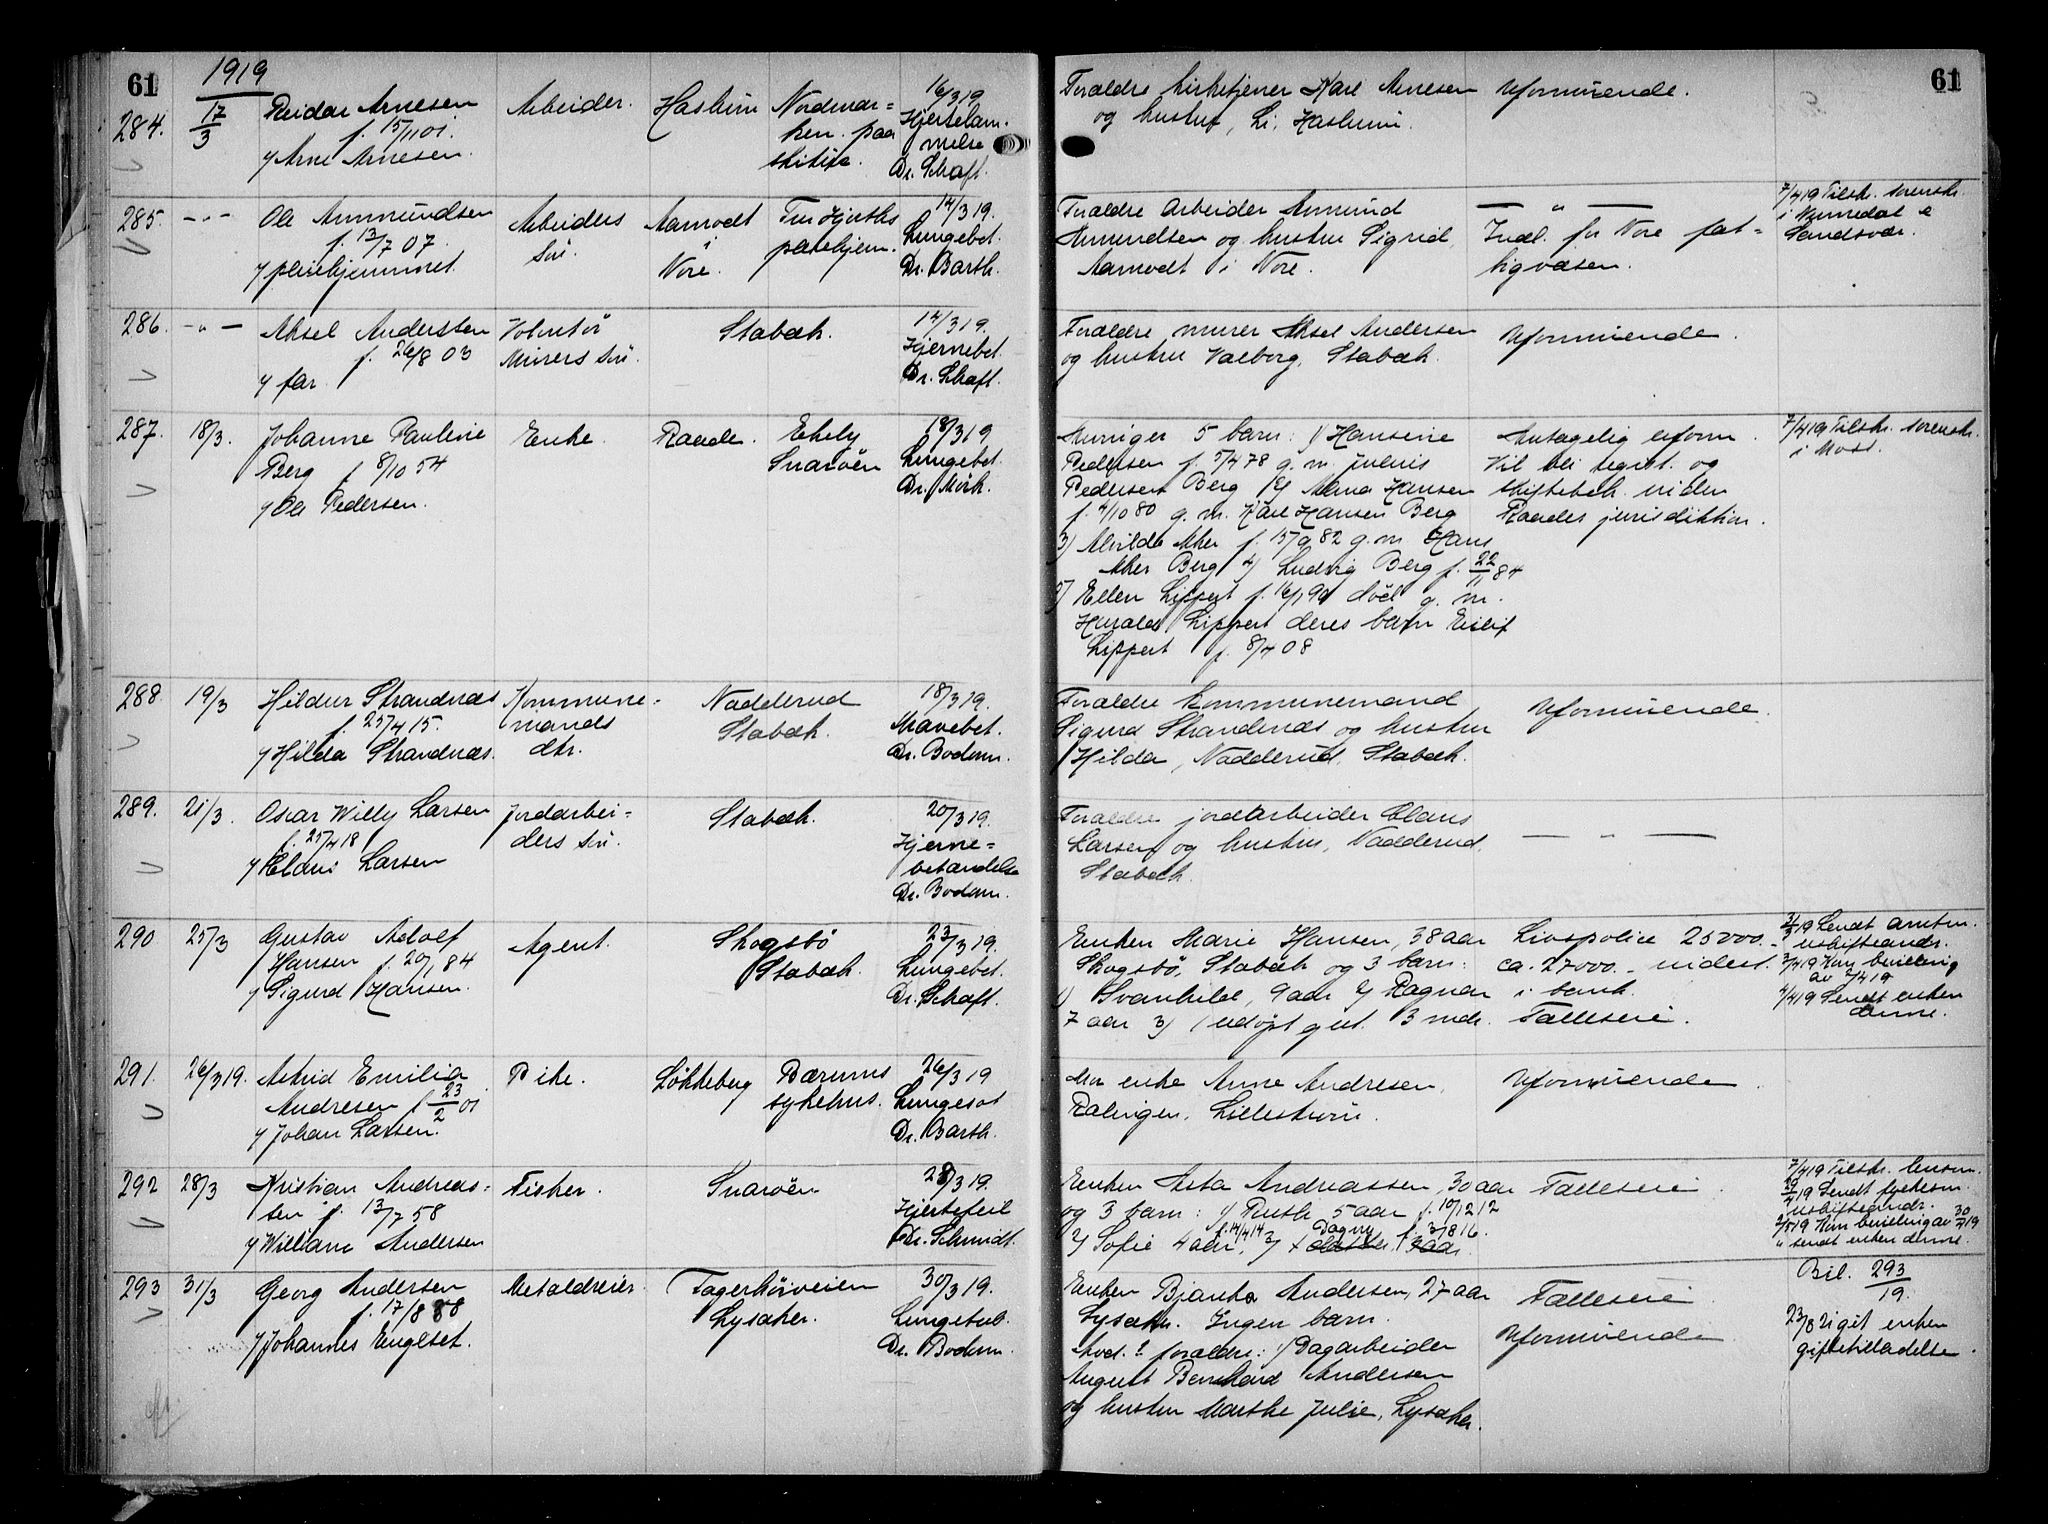 61
1919
284.
17/3
Reidar Arnesen
f. 15/1 01.
v/ Arne Arnesen.
Arbeider.
Haslum
Nordmar=
ken paa
skitur
16/3 19
Hjertelam-
melse
Dr. Schaft.
Forældre kirketjener Karl Arnesen
og hustru, Li, Haslum.
Uformuende.
61
285.
- " -
Ole Ammundsen
f. 13/7 07.
v/ pleiehjemmet.
Arbeiders
søn.
Aamodt
i
Nore.
Fru Hjorths
pleiehjem.
14/3 19.
Lungebet.
Dr. Barth.
Forældre arbeider Amund
Amundsen og hustru Sigrid,
Aamodt i Nore.
— " —
Indl. for Nore fat=
tigvæsen.
7/4 19 Tilskr. sorenskr.
i Numedal &
Sandsvær.
286.
- " -
Aksel Andersen
f. 26/8 03
v/ far.
Volontør
Murers søn.
Stabæk.
14/3 19.
Hjernebet.
Dr. Schaft.
Forældre murer Aksel Andersen
og hustru Valborg, Stabæk.
Uformuende.
287.
18/3.
Johanne Pauline
Berg f. 8/10 54
v/ Ole Pedersen.
Enke.
Raade.
Ekely
Snarøen
18/3 19
Lungebet.
Dr. Mørk.
5 barn: 1/ Hansine
Pedersen f. 5/4 78 g. m. Julius
Pedersen Berg 2/ Anna Hansen
f. 4/10 80 g. m. Karl Hansen Berg
3) Alvilda Aker f. 15/9 82 g. m. Hans
Aker Berg 4/ Ludvig Berg f. 22/11 84
5/ Ellen Lippert f. 16/1 90 død g. m.
Harald Lippert deres barn Eilif
Lippert f. 8/4 08
Antagelig uform.
Vil bli regist. og
skiftebeh. under
Raades jurisdiktion.
7/4 19 Tilskr. sorenskr.
i Moss.
288.
19/3
Hildur Strandnæs
f. 25/4 15.
v/ Hilda Strandnæs.
Kommune-
mands
dtr.
Nadderud
Stabæk.
18/3 19.
Mavebet.
Dr. Bodom.
Forældre kommunemand
Sigurd Strandnæs og hustru
Hilda, Nadderud, Stabæk.
Uformuende.
289.
21/3.
Oscar Willy Larsen
f. 25/4 18
v/ Claus Larsen
Jordarbei=
ders søn.
Stabæk.
20/3 19.
Hjerne=
betændelse
Dr. Bodom.
Forældre jordarbeider Claus
Larsen og hustru, Nadderud,
Stabæk.
— " —
290
25/3
Gustav Adolf
Hansen f. 20/1 84
v/ Sigurd Hansen.
Agent.
Skogsbø
Stabæk.
23/3 19.
Lungebet.
Dr. Schaft.
Enken Marie Hansen, 38 aar
Skogsbø, Stabæk og 3 barn:
1) Svanhild, 9 aar 2/ Ragnar
7 aar 3) 1 udøpt gut. 3 mdr.
Livspolice 25000.-
ca. 27000.- indest.
i bank.
Fælleseie.
Sendt amtm.
uskifteandr.
2/4 19 Kom bevilling
av 2/4 19
4/4 19 Sendt enken
denne.
291.
26/3 19.
Astrid Emilia
Andresen f. 23/2 01
v/ Johan Larsen.
Pike.
Løkkeberg
Bærums
sykehus.
26/3 19
Lungesot
Dr. Barth.
Mor enke Anne Andresen,
Rælingen, Lillestrøm.
Uformuende.
292
28/3
Kristian Andreas=
sen f. 13/7 58
v/ William Andersen
Fisker.
Snarøen
28/3 19.
Hjertefeil
Dr. Schmidt.
Enken Asta Andreassen, 30 aar
og 3 barn: 1/ Ruth 5 aar f. 10/12 12
2/ Sofie 4 aar, f. 14/4 14 3/ Dagny f. 3/8 16.
Fælleseie.
7/4 19 Tilskr. lensm.
29/4 19 Sendt fylkesm.
uskifteandr.
2/5 19 Kom bevilling av 30/4 19
" sendt enken denne.
293
31/3
Georg Andersen
f. 17/8 88
v/ Johannes Engeset.
Metaldreier.
Fagerhøiveien
Lysaker.
30/3 19.
Lungetub.
Dr. Bodom.
Enken Bjanka Andersen, 27 aar
Lysaker. Ingen barn.
Avd.s forældre: 1/ Dagarbeider
August Bernhard Andersen
og hustru Marthe Julie, Lysaker.
Fælleseie.
Uformuende
Bil. 293/19.
23/8 21 git enken
giftetilladelse.